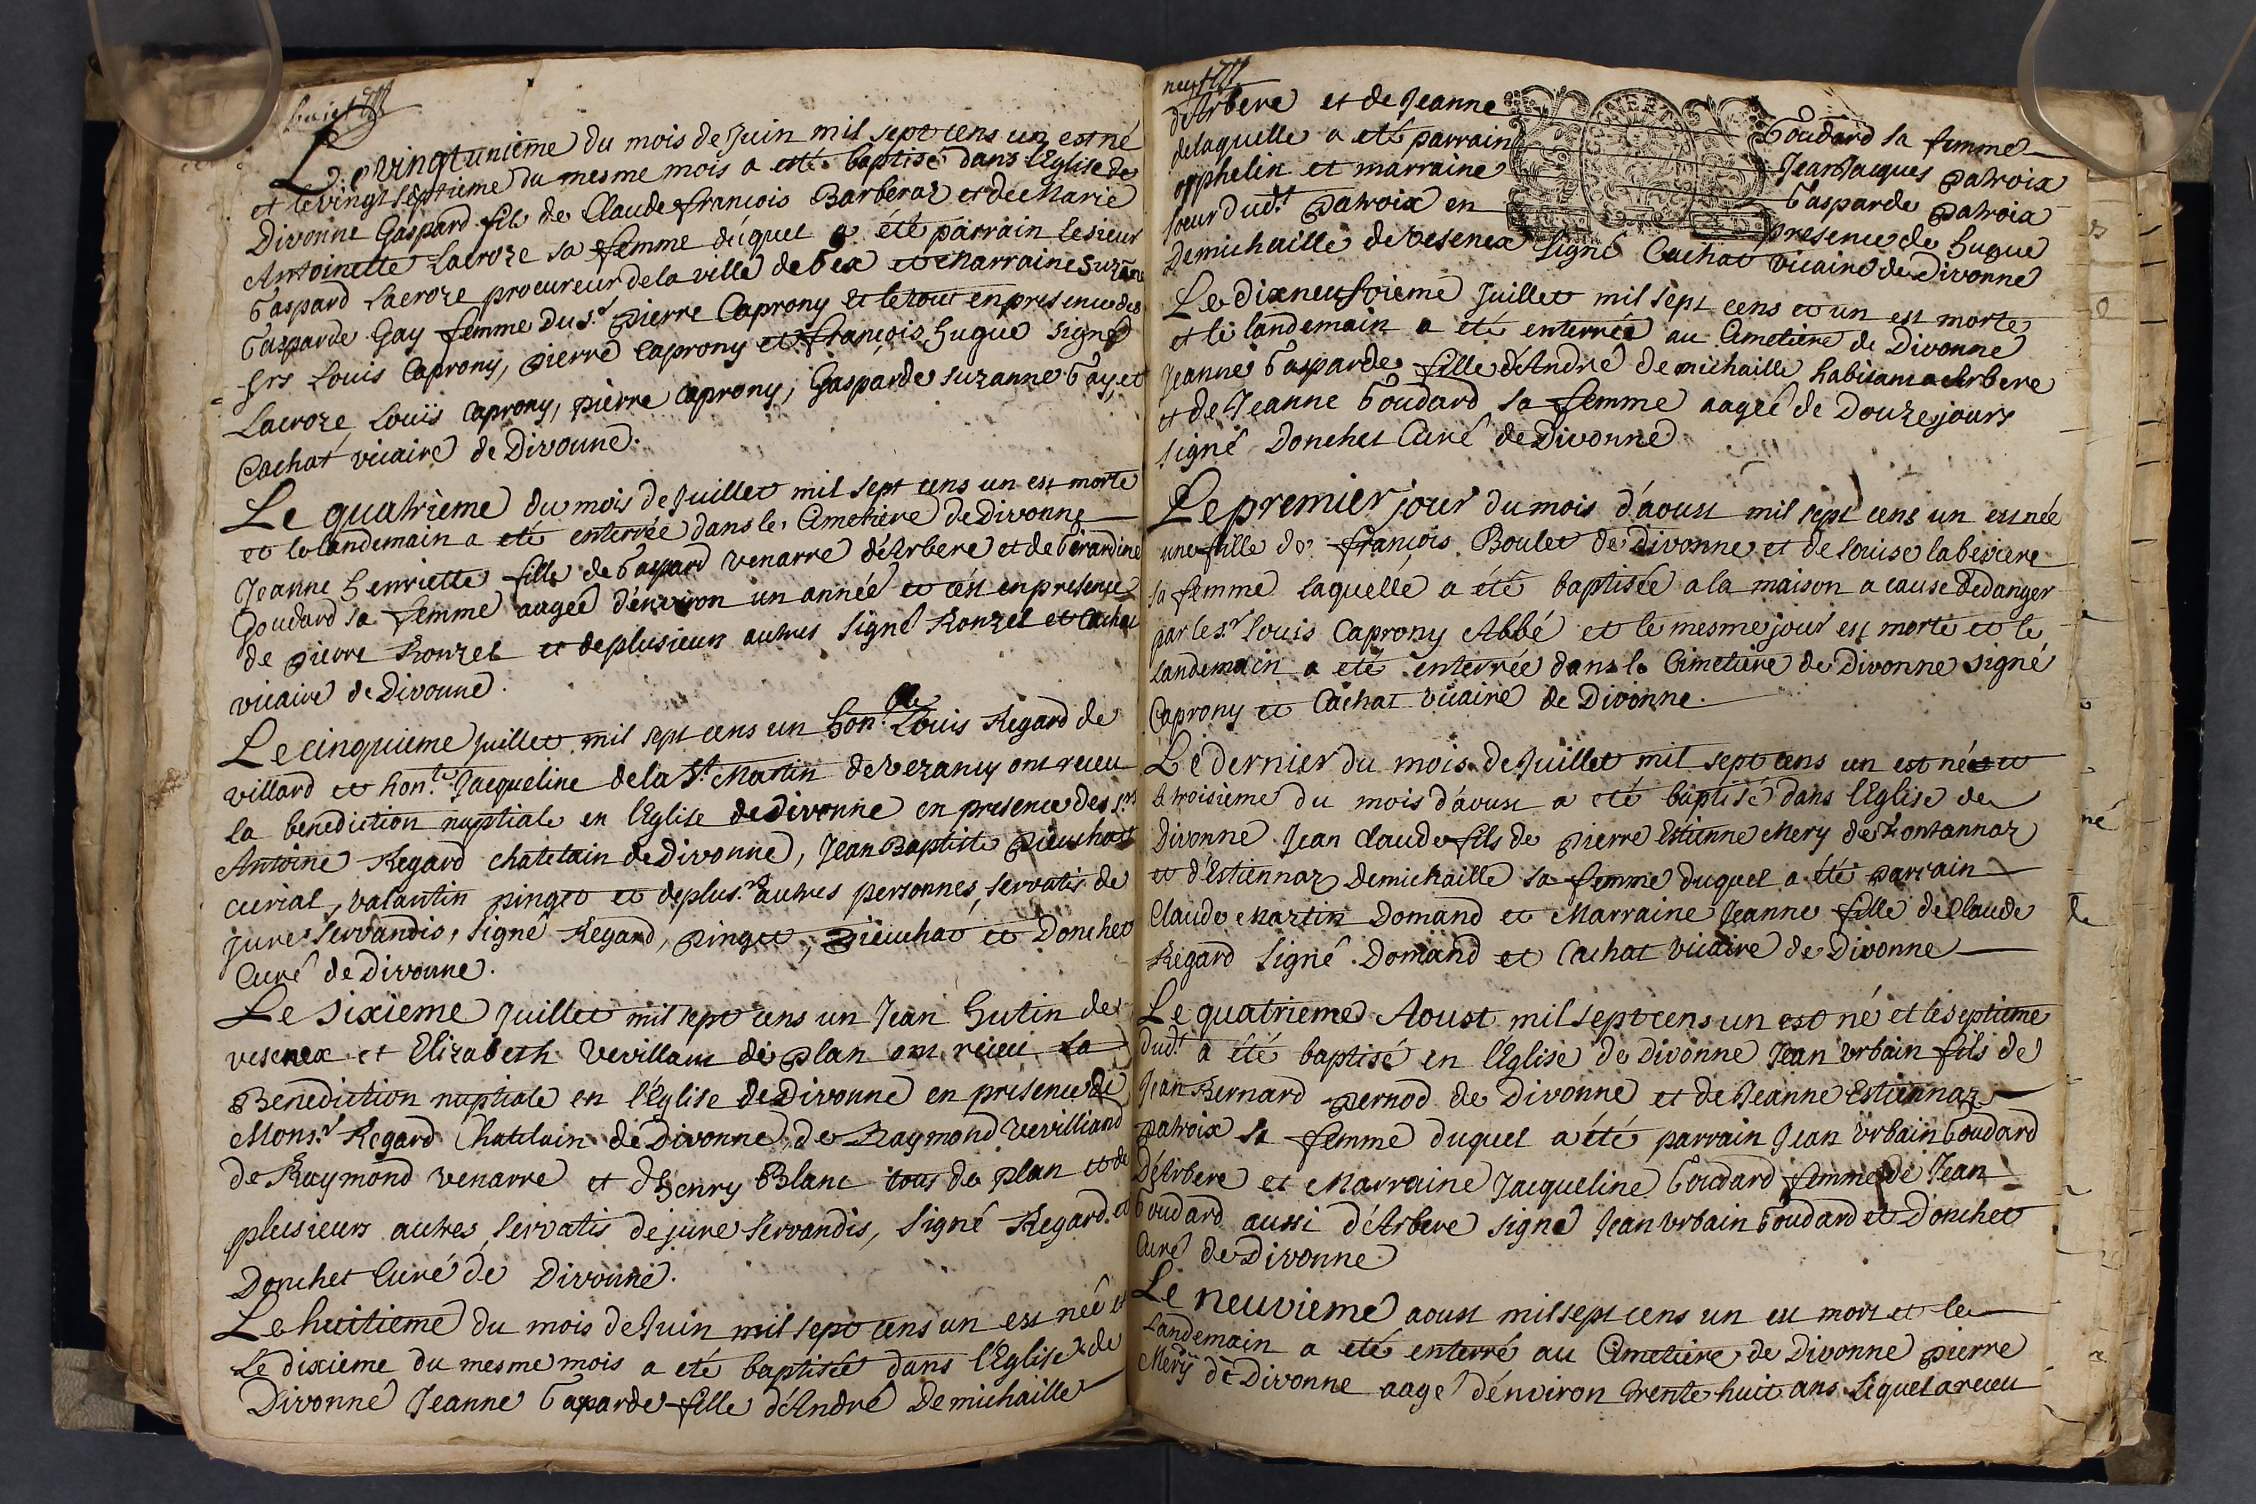 huict
Le vingtunieme du mois de Juin mil sept cens un est né
et le vingt septieme du mesme mois a esté baptisé dans l'Eglise de
Divonne Gaspard fils de Claude françois Barberaz et de Marie
Antoinette Lacroze sa femme duquel a été parrain le sieur
Gaspard Lacroze procureur de la ville de Gex et Marraine Suzane
Gasparde Gay femme du Sr. pierre Caprony et le tout en presence des
Srs Louis Caprony, pierre Caprony et françois hugue signé
Lacroze Louis Caprony, pierre Caprony, Gasparde suzanne Gay, et
Cachat vicaire de Divonne.
Le quatrieme du mois de Juillet mil sept cens un est morte
et le landemain a eté enterrée dans le Cimetiere de Divonne
Jeanne henriette fille de Gaspard venarre d'Arbere et de Gerardine
Goudard sa femme aagée d'environ un année et c'est en presence
de pierre Ronzel et de plusieurs autres signé Ronzel et Cachat
vicaire de Divonne.
Le cinquieme Juillet mil sept cens un hon.ble Louis Regard de
villard et hon.te Jacqueline de la St. Martin de vezancy ont receu
la benediction nuptiale en l'Eglise de Divonne en presence des srs
Antoine Regard chatelain de Divonne, Jean Baptiste pieuchat
curial, valantin pinget et de plus.rs autres personnes, servatis de
jure servandis, signé Regard, pinget, pieuchat et Donchet
Curé de Divonne.
Le sixieme Juillet mil sept cens un Jean hutin de
vesenex et Elizabeth Vevillam de plan ont receu La
Benediction nuptiale en l'Eglise de Divonne en presence de
Mons.r Regard Chatelain de Divonne, de Raymond Vevilliand
de Raymond venarre et d'henry Blanc tous de plan et de
plusieurs autres, servatis de jure servandis, signé Regard et
Donchet Curé de Divonne.
Le huitieme du mois de Juin mil sept cens un est née et
Le dixieme du mesme mois a eté baptisée dans l'Eglise de
Divonne Jeanne Gaparde fille d'André Demichaille
neuf
d'Arbere et de Jeanne Goudard sa femme
de laquelle a eté parrain Jean Jacques patroix
orphelin et marraine Gasparde patroix
soeur dud.t patroix en presence de hugue
Demichaille de vesenex signé Cachat vicaire de Divonne
Le dixneufvieme Juillet mil sept cens et un est morte
et le landemain a eté enterrée au Cimetiere de Divonne
Jeanne Gasparde fille d'André demichaille habitant a Arbere
et de Jeanne Goudard sa femme aagée de Douze jours
signé Donchet Curé de Divonne
Le premier jour du mois d'aoust mil sept cens un est née
une fille de françois Boulet de divonne et de Louise labeviere
sa femme laquelle a été baptisée a la maison a cause de danger
par le s.r Louis Caprony Abbé et le mesme jour est morte et le
landemain a eté enterrée dans le Cimetiere de Divonne signé
Caprony et Cachat vicaire de Divonne.
Le dernier du mois de Juillet mil sept cens un est né et
le troisieme du mois d'aoust a eté baptisé dans l'Eglise de
Divonne Jean Claude fils de pierre Estienne Mery de fontannaz
et d'Estiennaz Demichaille sa femme duquel a été parrain
Claude Martin Domand et Marraine Jeanne fille de Claude
Regard signé Domand et Cachat vicaire de Divonne
Le quatrieme Aoust mil sept cens un est né et le septieme
dud.t a été baptisé en l'Eglise de Divonne Jean Urbain fils de
Jean Bernard pernod de Divonne et de Jeanne Estiennaz
patroix sa femme duquel a été parrain Jean Urbain Goudard
D'Arbere et Marraine Jacqueline Goudard femme de Jean
Goudard aussi d'Arbere signé Jean Urbain Goudard et Donchet
Curé de Divonne
Le neuvieme aoust mil sept cens un est mort et le
Landemain a eté enterré au Cimetiere de Divonne pierre
Mery de Divonne aagé d'environ trente huit ans lequel a receu